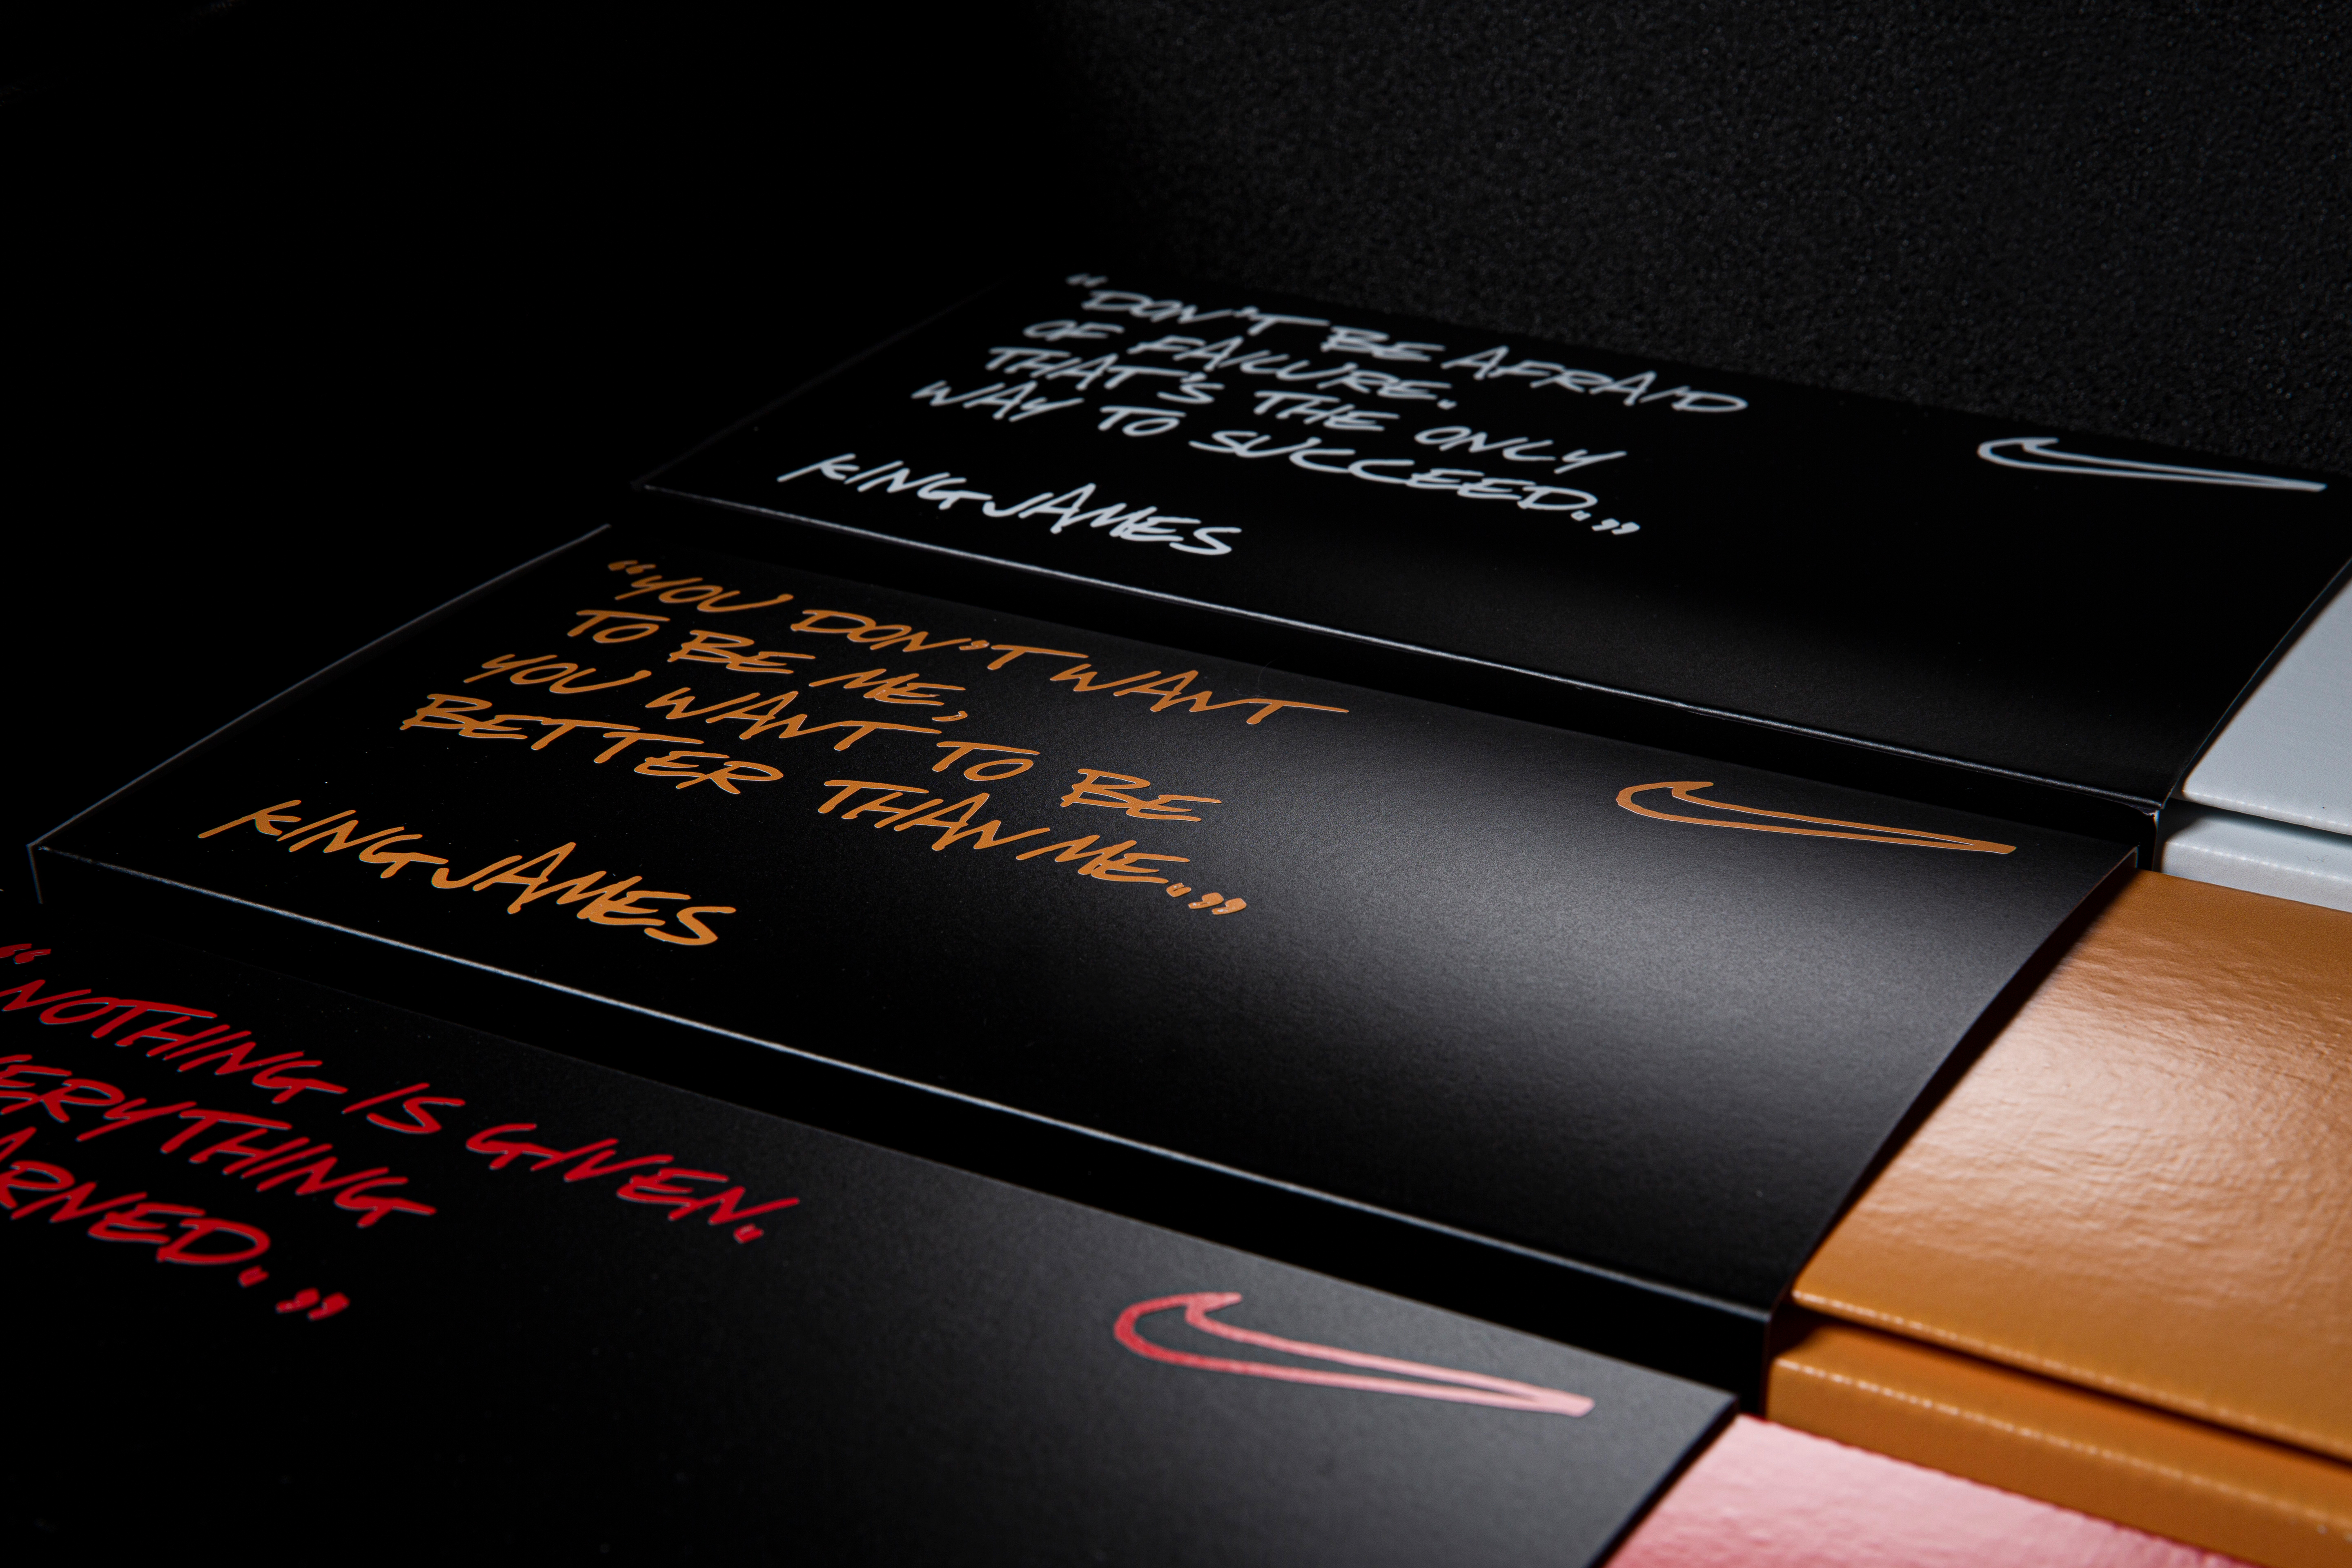 “DON'T BE AFRAID
OF FAILURE.
THAT'S THE ONLY
WAY TO SUCCEED.”
KING JAMES
“YOU DON'T WANT
TO BE ME,
YOU WANT TO BE
BETTER THAN ME.”
KING JAMES
“NOTHING IS GIVEN.